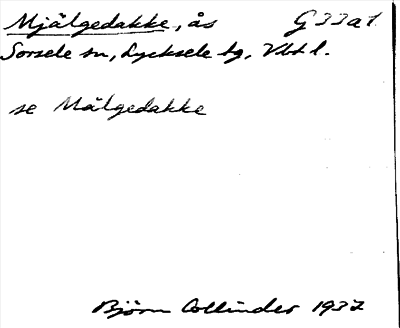 Mjälgedakke, ås G 33 a 1
Sorsele sn, Lycksele tg, Vbtl.
se Mälgedakke
Björn Collinder 1937